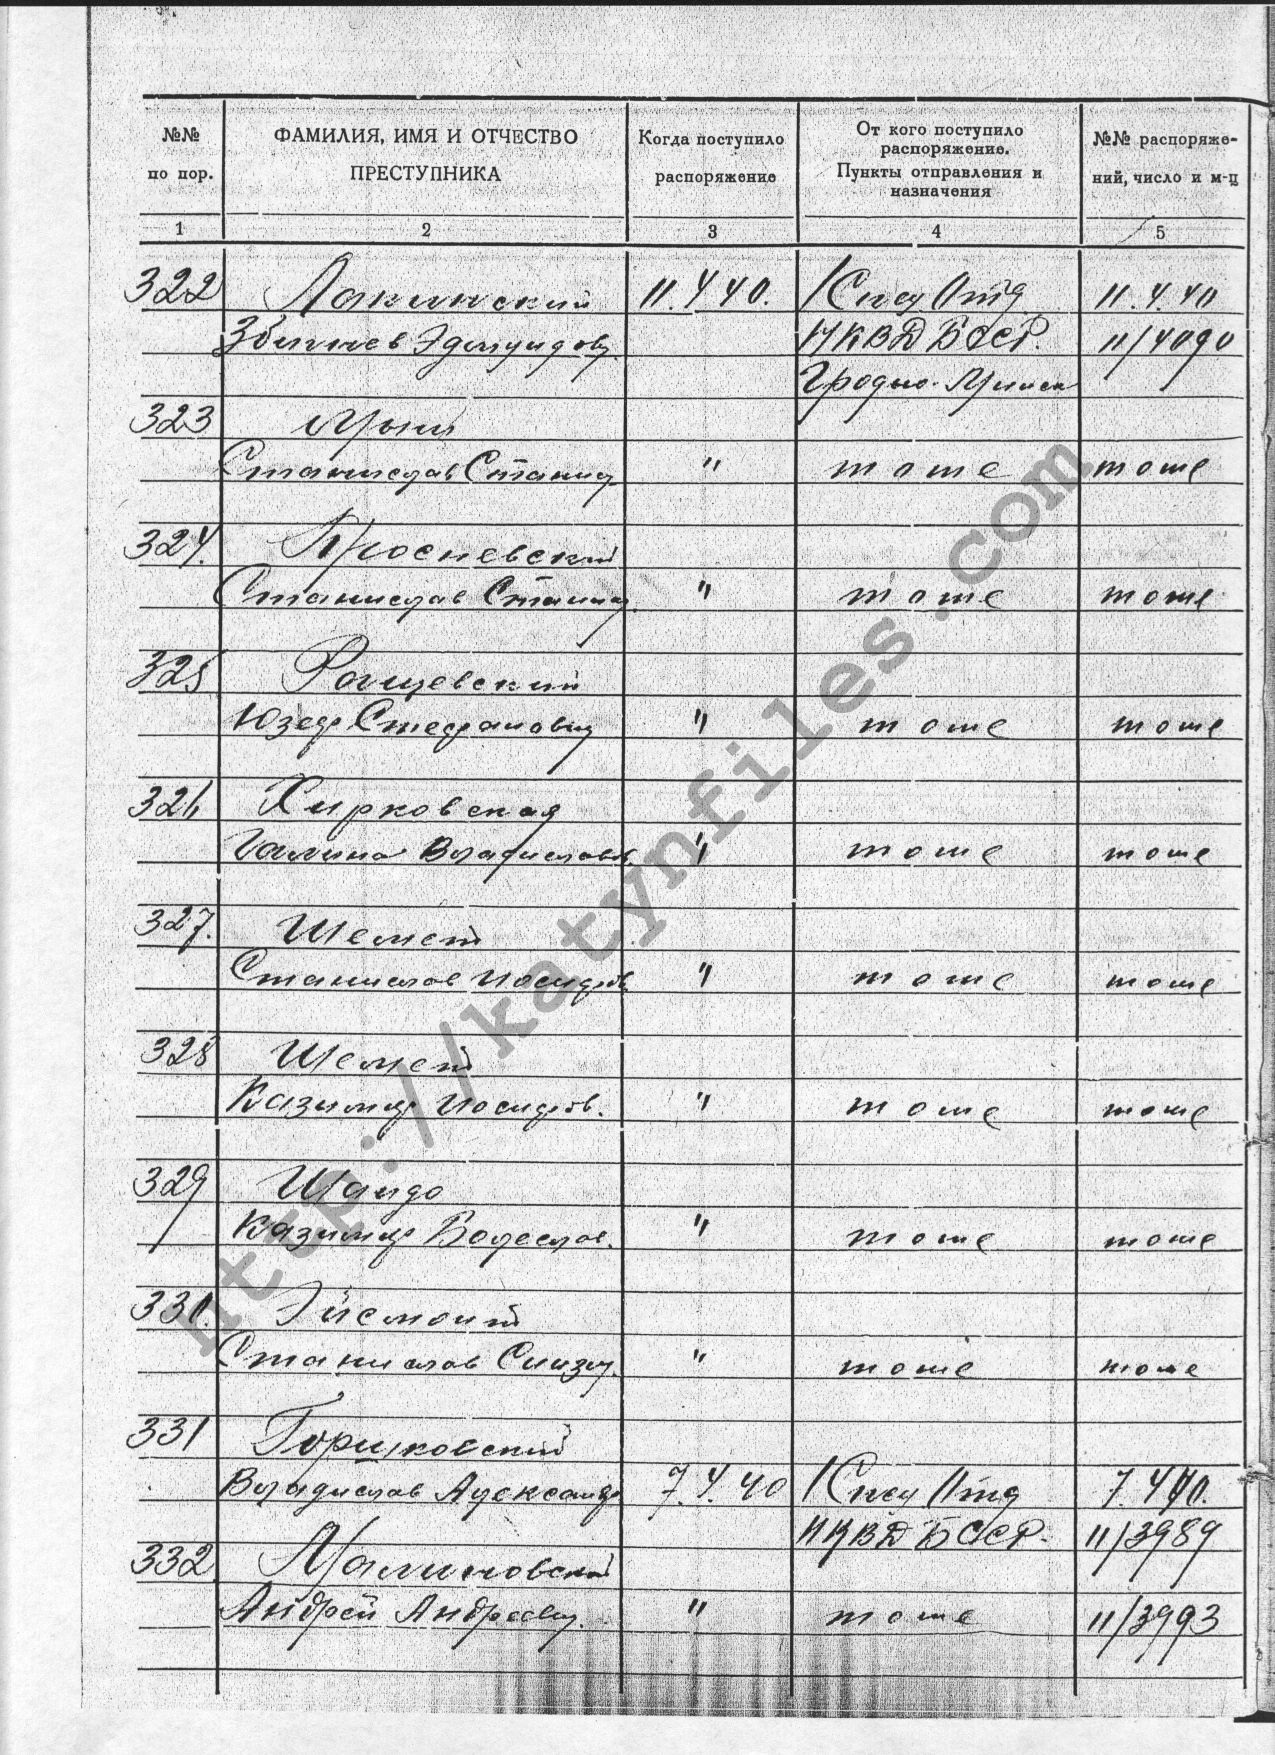 №№ по пор.
ФАМИЛИЯ, ИМЯ И ОТЧЕСТВО ПРЕСТУПНИКА
Когда поступило распоряжение
От кого поступило распоряжение. Пункты отправления и назначения
№№ распоряже-ний, число и м-ц
1 2 3 4 5
322 Лакинский 11.4.40. 1 Спец Отд 11.4.40
Збигнев Эдмундов. НКВД БССР. 11/4090
Гродно-Минск
323
Станислав Станисл. " тоже тоже
324. Просневский
Станислав Станисл. " тоже тоже
325 Ращевский
Юзеф Стефанович " тоже тоже
326 Хирковская
Галина Владиславов. " тоже тоже
327. Шемет
Станислав Иосифов. " тоже тоже
328 Шемет
Казимир Иосифов. " тоже тоже
329 Шандо
Казимир Болеслав. " тоже тоже
330. Эйсмонт
Станислав " тоже тоже
331 Горшковский
Владислав Александр 7.4.40 1 Спец Отд 7.4.40.
НКВД БССР. 11/3989
332 Малиновский
Андрей Андреевич. " тоже 11/3993
http://katynfiles.com